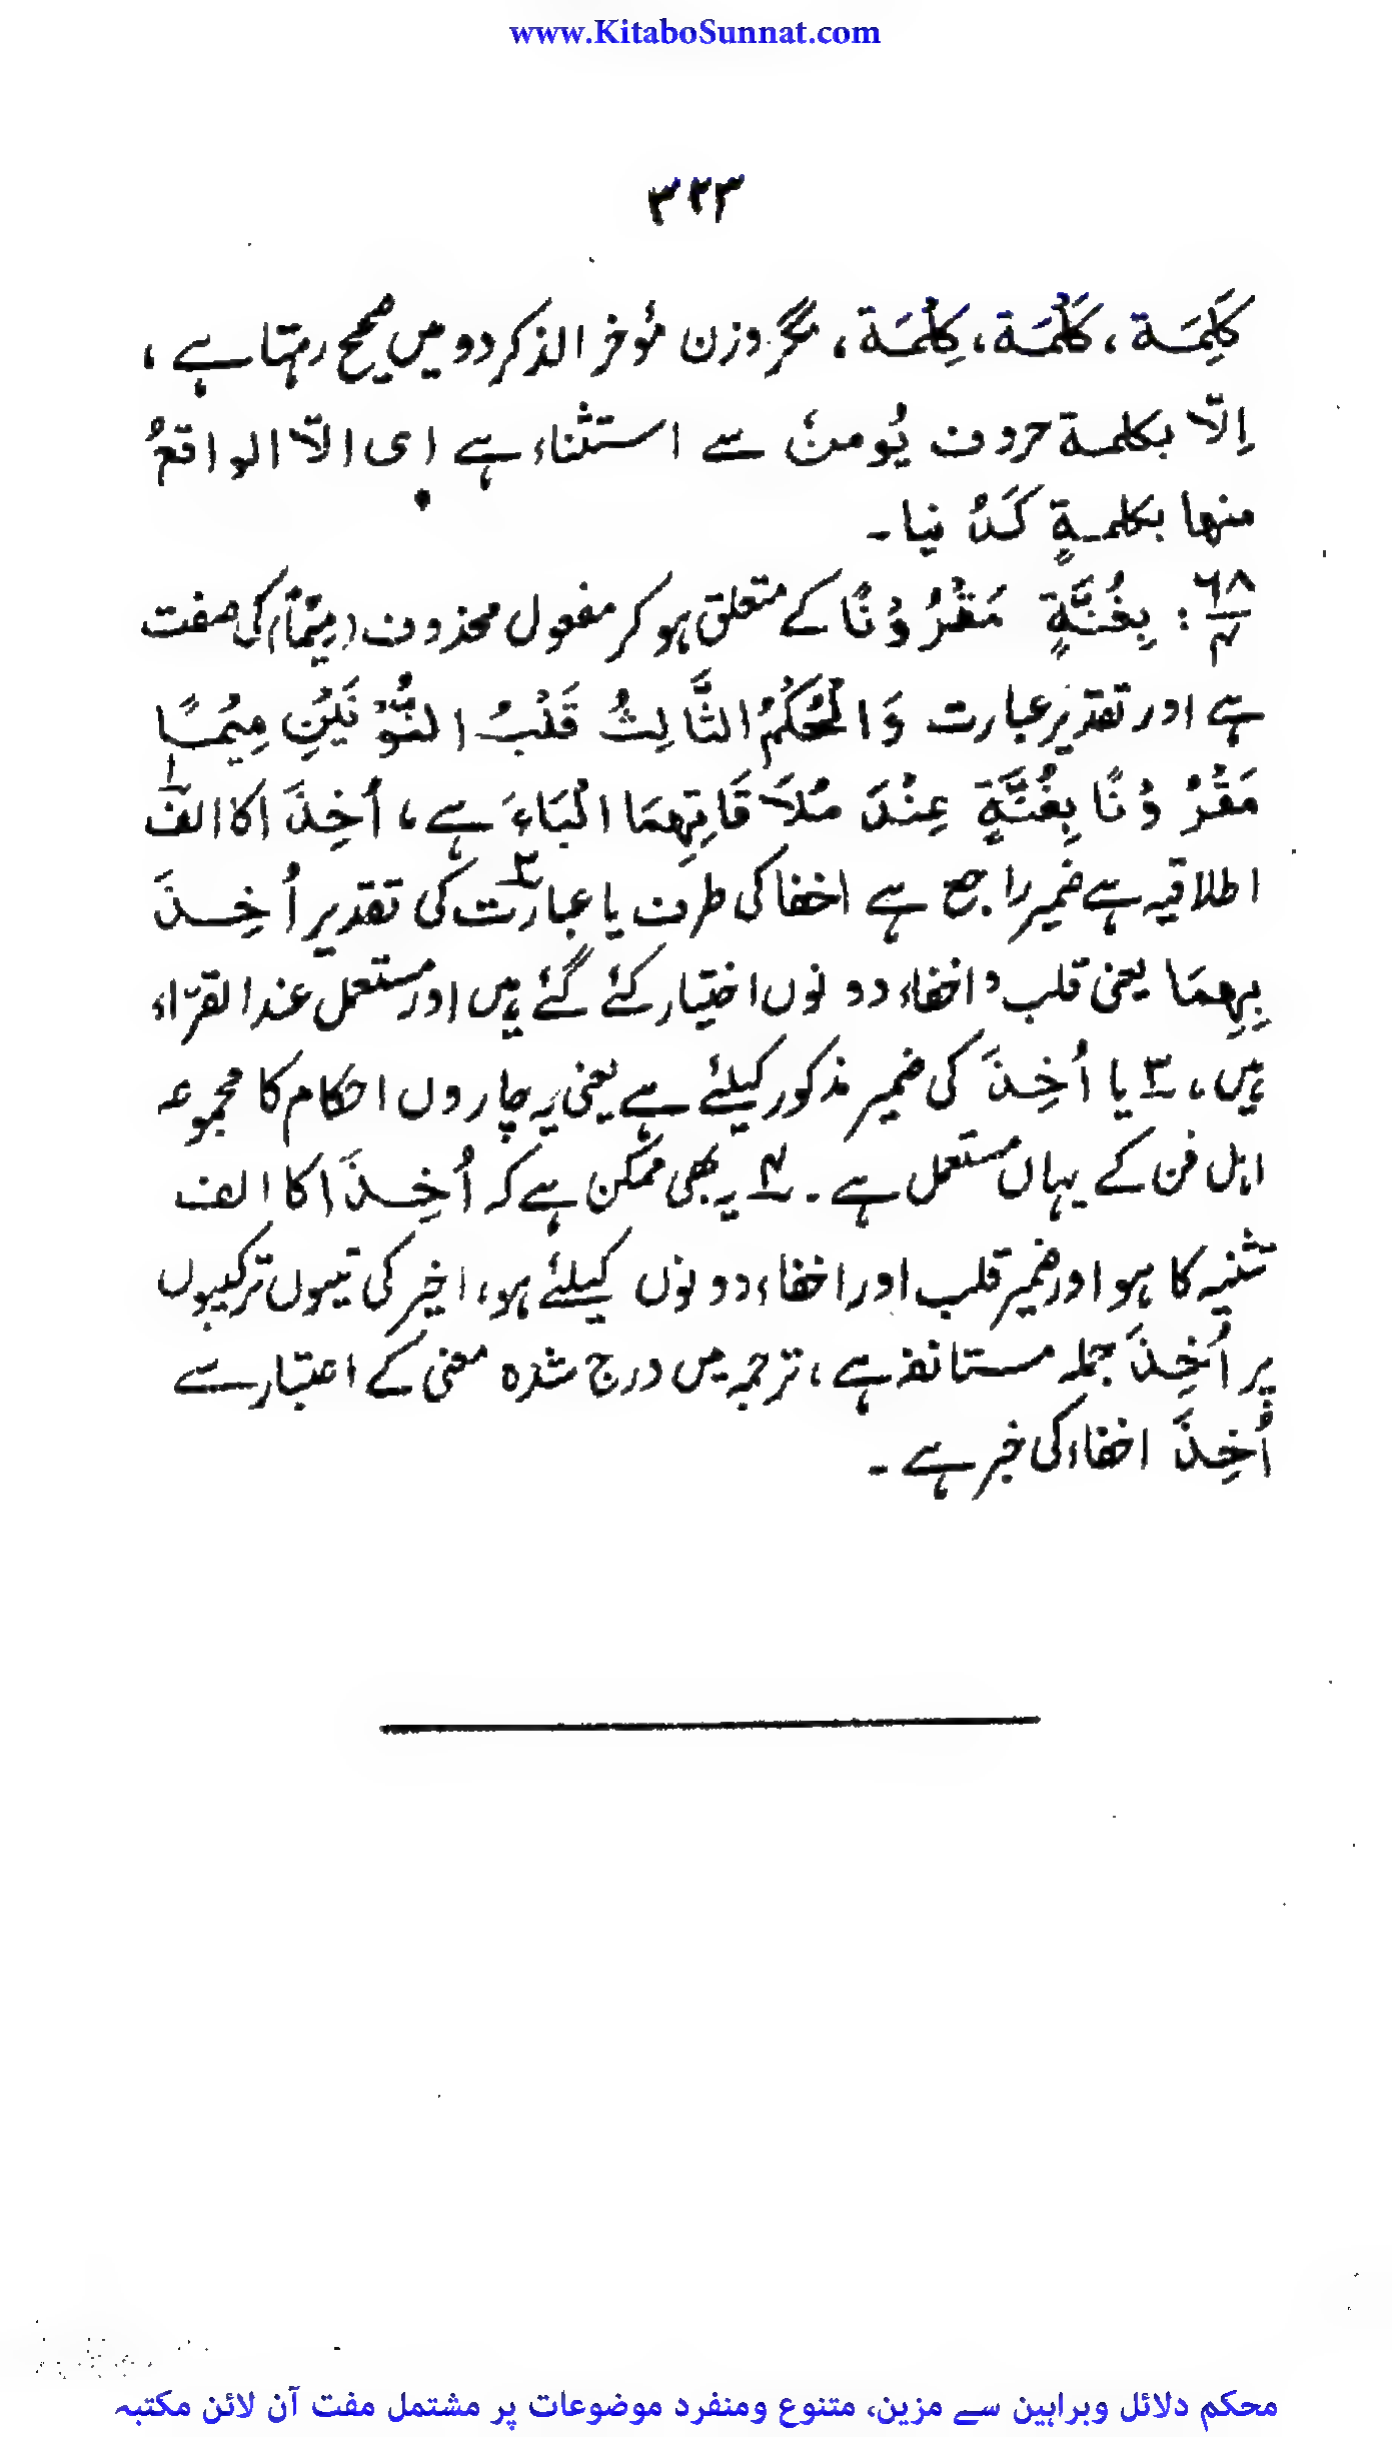 www.KitaboSunnat.com
۳۲۳
کَلِمَة، کَلْمَة، کِلْمَة، مگر وزن مؤخر الذکر دو میں صحیح رہتا ہے،
اِلّا بکلمة حروف یُومنُ سے استثناء ہے ای الّا الواقعُ
منها بکلمةٍ کَدُنیا۔
۶۸/۴ : بِغُنَّةٍ مَقْرُوْنًا کے متعلق ہو کر مفعول محذوف (مِیْمًا) کی صفت
ہے اور تقدیر عبارت وَالْحُکْمُ الثَّالِثُ قَلْبُ النُّوْنَیْنِ مِیْمًا
مَقْرُوْنًا بِغُنَّةٍ عِنْدَ مُلَاقَاتِهِمَا الْبَاءَ ہے، اُخِذَا کا الف ۱
اطلاقیہ ہے ضمیر راجع ہے اخفا کی طرف یا عبارت ۲ کی تقدیر اُخِذَ
بِهِمَا یعنی قلب و اخفاء دونوں اختیار کئے گئے ہیں اور مستعمل عند القرّاء
ہیں، ۳ یا اُخِذَ کی ضمیر مذکور کیلئے ہے یعنی یہ چاروں احکام کا مجموعہ
اہل فن کے یہاں مستعمل ہے۔ ۴ یہ بھی ممکن ہے کہ اُخِذَا کا الف
تثنیہ کا ہو اور ضمیر قلب اور اخفاء دونوں کیلئے ہو، اخیر کی تینوں ترکیبوں
پر اُخِذَ جملہ مستانفہ ہے، ترجمہ میں درج شدہ معنی کے اعتبار سے
اُخِذَ اخفاء کی خبر ہے۔
محکم دلائل وبراہین سے مزین، متنوع ومنفرد موضوعات پر مشتمل مفت آن لائن مکتبہ